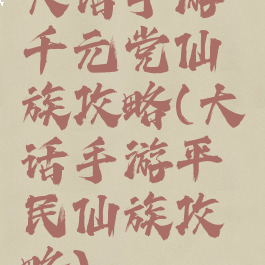 大话手游
千元党仙
族攻略(大
话手游平
民仙族攻
略)